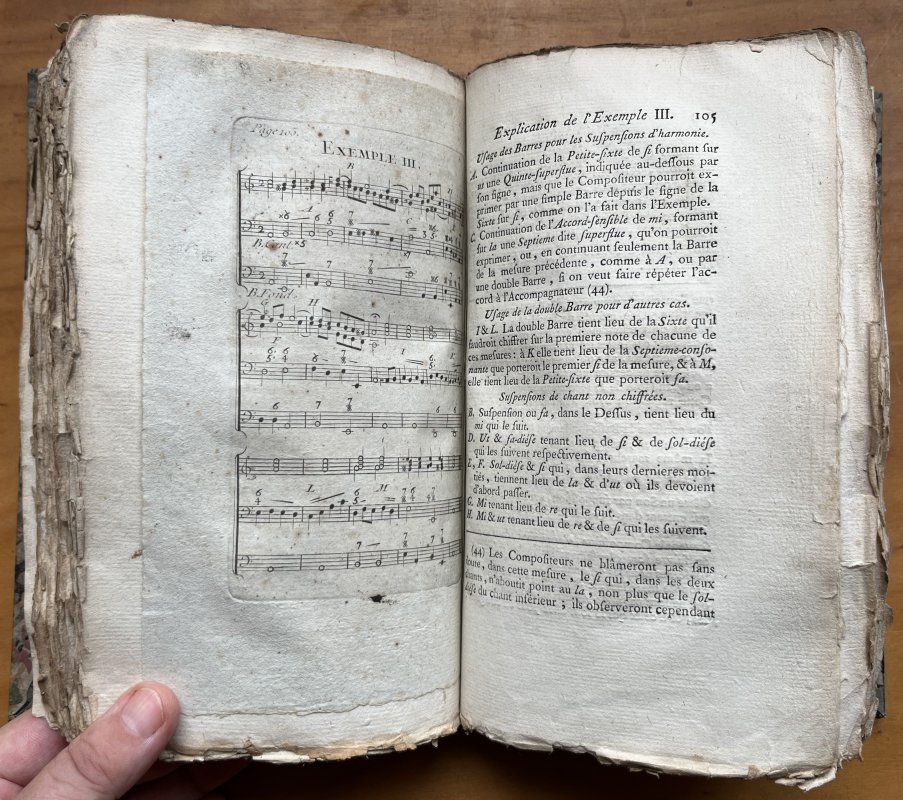 Page 105.
EXEMPLE III.
B. Cont.
B. Fond.
G H
F I
L M
Explication de l'Exemple III. 105
Uſage des Barres pour les Suſpenſions d'harmonie.
A. Continuation de la Petite-ſixte de ſi formant ſur
ut une Quinte-ſuperflue, indiquée au-deſſous par
ſon ſigne, mais que le Compoſiteur pourroit ex-
primer par une ſimple Barre depuis le ſigne de la
Sixte ſur ſi, comme on l'a fait dans l'Exemple.
C. Continuation de l'Accord-ſenſible de mi, formant
ſur la une Septieme dite ſuperflue, qu'on pourroit
exprimer, ou, en continuant ſeulement la Barre
de la meſure précédente, comme à A, ou par
une double Barre, ſi on veut faire répéter l'ac-
cord à l'Accompagnateur (44).
Uſage de la double Barre pour d'autres cas.
I & L. La double Barre tient lieu de la Sixte qu'il
faudroit chiffrer ſur la premiere note de chacune de
ces meſures : à K elle tient lieu de la Septieme-conſo-
nante que porteroit le premier ſi de la meſure, & à M,
elle tient lieu de la Petite-ſixte que porteroit fa.
Suſpenſions de chant non chiffrées.
B. Suſpenſion ou fa, dans le Deſſus, tient lieu du
mi qui le ſuit.
D. Ut & fa-diéſe tenant lieu de ſi & de ſol-diéſe
qui les ſuivent reſpectivement.
E, F. Sol-diéſe & ſi qui, dans leurs dernieres moi-
tiés, tiennent lieu de la & d'ut où ils devoient
d'abord paſſer.
G. Mi tenant lieu de re qui le ſuit.
H. Mi & ut tenant lieu de re & de ſi qui les ſuivent.
(44) Les Compoſiteurs ne blâmeront pas ſans
doute, dans cette meſure, le ſi qui, dans les deux
chants, n'aboutit point au la, non plus que le ſol-
diéſe du chant inférieur ; ils obſerveront cependant